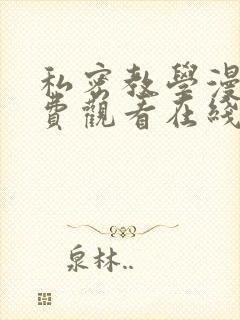 私密教學漫
費觀看在线
泉林..